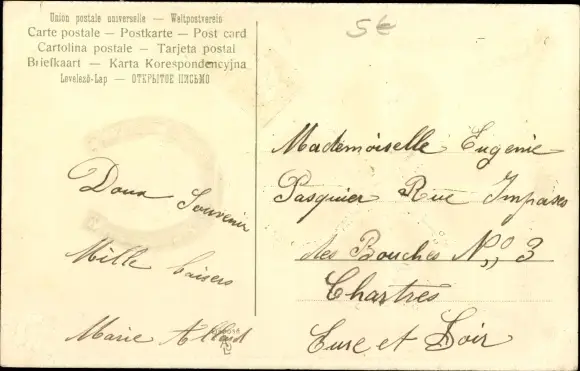 Union postale universelle — Weltpostverein
Carte postale — Postkarte — Post card
Cartolina postale — Tarjeta postal
Briefkaart — Karta Korespondencyjna
Levelező-Lap — ОТКРЫТОЕ ПИСЬМО
5€
Doux Souvenir
Mille baisers
Marie Allard
Mademoiselle Eugenie
Pasquier Rue Impasse
des Bouches No 3
Chartres
Eure et Loir